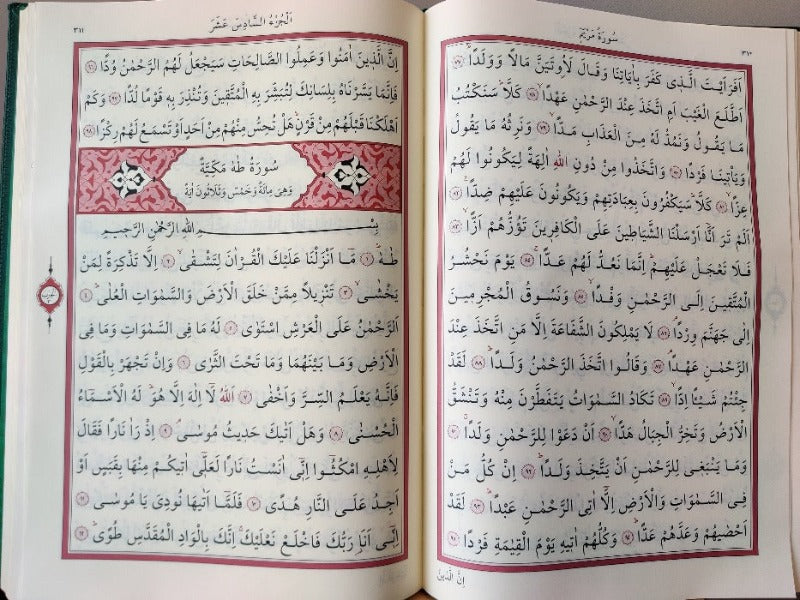 سُورَةُ مَرْيَمَ
٣١٠
اَفَرَاَيْتَ الَّذٖى كَفَرَ بِاٰيَاتِنَا وَقَالَ لَاُوتَيَنَّ مَالًا وَوَلَدًا ﴿٧٧﴾
اَطَّلَعَ الْغَيْبَ اَمِ اتَّخَذَ عِنْدَ الرَّحْمٰنِ عَهْدًا ﴿٧٨﴾ كَلَّا سَنَكْتُبُ
مَا يَقُولُ وَنَمُدُّ لَهُ مِنَ الْعَذَابِ مَدًّا ﴿٧٩﴾ وَنَرِثُهُ مَا يَقُولُ
وَيَاْتٖينَا فَرْدًا ﴿٨٠﴾ وَاتَّخَذُوا مِنْ دُونِ اللّٰهِ اٰلِهَةً لِيَكُونُوا لَهُمْ
عِزًّا ﴿٨١﴾ كَلَّا سَيَكْفُرُونَ بِعِبَادَتِهِمْ وَيَكُونُونَ عَلَيْهِمْ ضِدًّا ﴿٨٢﴾
اَلَمْ تَرَ اَنَّا اَرْسَلْنَا الشَّيَاطٖينَ عَلَى الْكَافِرٖينَ تَؤُزُّهُمْ اَزًّا ﴿٨٣﴾
فَلَا تَعْجَلْ عَلَيْهِمْ اِنَّمَا نَعُدُّ لَهُمْ عَدًّا ﴿٨٤﴾ يَوْمَ نَحْشُرُ
الْمُتَّقٖينَ اِلَى الرَّحْمٰنِ وَفْدًا ﴿٨٥﴾ وَنَسُوقُ الْمُجْرِمٖينَ
اِلٰى جَهَنَّمَ وِرْدًا ﴿٨٦﴾ لَا يَمْلِكُونَ الشَّفَاعَةَ اِلَّا مَنِ اتَّخَذَ عِنْدَ
الرَّحْمٰنِ عَهْدًا ﴿٨٧﴾ وَقَالُوا اتَّخَذَ الرَّحْمٰنُ وَلَدًا ﴿٨٨﴾ لَقَدْ
جِئْتُمْ شَيْـًٔا اِدًّا ﴿٨٩﴾ تَكَادُ السَّمٰوَاتُ يَتَفَطَّرْنَ مِنْهُ وَتَنْشَقُّ
الْاَرْضُ وَتَخِرُّ الْجِبَالُ هَدًّا ﴿٩٠﴾ اَنْ دَعَوْا لِلرَّحْمٰنِ وَلَدًا ﴿٩١﴾
وَمَا يَنْبَغٖى لِلرَّحْمٰنِ اَنْ يَتَّخِذَ وَلَدًا ﴿٩٢﴾ اِنْ كُلُّ مَنْ
فِى السَّمٰوَاتِ وَالْاَرْضِ اِلَّا اٰتِى الرَّحْمٰنِ عَبْدًا ﴿٩٣﴾ لَقَدْ
اَحْصٰيهُمْ وَعَدَّهُمْ عَدًّا ﴿٩٤﴾ وَكُلُّهُمْ اٰتٖيهِ يَوْمَ الْقِيٰمَةِ فَرْدًا ﴿٩٥﴾
اِنَّ الَّذٖينَ
اَلْجُزْءُ السَّادِسَ عَشَرَ
٣١١
اِنَّ الَّذٖينَ اٰمَنُوا وَعَمِلُوا الصَّالِحَاتِ سَيَجْعَلُ لَهُمُ الرَّحْمٰنُ وُدًّا ﴿٩٦﴾
فَاِنَّمَا يَسَّرْنَاهُ بِلِسَانِكَ لِتُبَشِّرَ بِهِ الْمُتَّقٖينَ وَتُنْذِرَ بِهٖ قَوْمًا لُدًّا ﴿٩٧﴾ وَكَمْ
اَهْلَكْنَا قَبْلَهُمْ مِنْ قَرْنٍ هَلْ تُحِسُّ مِنْهُمْ مِنْ اَحَدٍ اَوْ تَسْمَعُ لَهُمْ رِكْزًا ﴿٩٨﴾
سُورَةُ طٰهٰ مَكِّيَّةٌ
وَهِىَ مِائَةٌ وَخَمْسٌ وَثَلَاثُونَ اٰيَةً
بِسْمِ اللّٰهِ الرَّحْمٰنِ الرَّحٖيمِ
طٰهٰ ﴿١﴾ مَا اَنْزَلْنَا عَلَيْكَ الْقُرْاٰنَ لِتَشْقٰى ﴿٢﴾ اِلَّا تَذْكِرَةً لِمَنْ
يَخْشٰى ﴿٣﴾ تَنْزٖيلًا مِمَّنْ خَلَقَ الْاَرْضَ وَالسَّمٰوَاتِ الْعُلٰى ﴿٤﴾
اَلرَّحْمٰنُ عَلَى الْعَرْشِ اسْتَوٰى ﴿٥﴾ لَهُ مَا فِى السَّمٰوَاتِ وَمَا فِى
الْاَرْضِ وَمَا بَيْنَهُمَا وَمَا تَحْتَ الثَّرٰى ﴿٦﴾ وَاِنْ تَجْهَرْ بِالْقَوْلِ
فَاِنَّهُ يَعْلَمُ السِّرَّ وَاَخْفٰى ﴿٧﴾ اَللّٰهُ لَا اِلٰهَ اِلَّا هُوَ لَهُ الْاَسْمَاءُ
الْحُسْنٰى ﴿٨﴾ وَهَلْ اَتٰيكَ حَدٖيثُ مُوسٰى ﴿٩﴾ اِذْ رَاٰ نَارًا فَقَالَ
لِاَهْلِهِ امْكُثُوا اِنّٖى اٰنَسْتُ نَارًا لَعَلّٖى اٰتٖيكُمْ مِنْهَا بِقَبَسٍ اَوْ
اَجِدُ عَلَى النَّارِ هُدًى ﴿١٠﴾ فَلَمَّا اَتٰيهَا نُودِىَ يَا مُوسٰى ﴿١١﴾
اِنّٖى اَنَا رَبُّكَ فَاخْلَعْ نَعْلَيْكَ اِنَّكَ بِالْوَادِ الْمُقَدَّسِ طُوًى ﴿١٢﴾